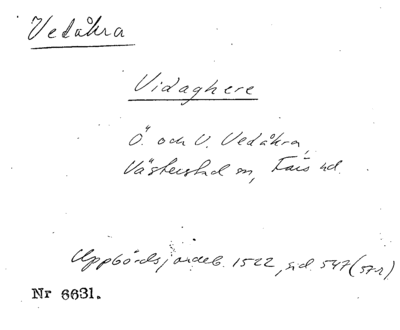 Vedåkra
Vidaghere
Ö. och V. Vedåkra,
Västerstad sn, Färs hd.
Uppbördsjordeb. 1522, sid 547 (572)
Nr 6631.